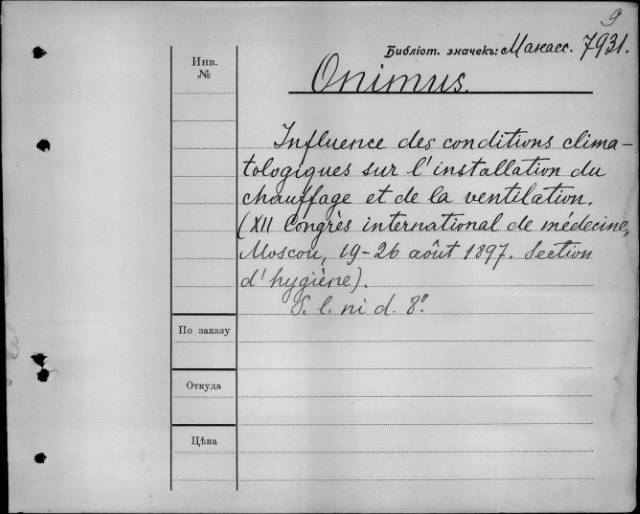 9
Библіот. значекъ: Макасс. 7931.
Инв.
№
Onimus.
Influence des conditions clima-
tologiques sur l'installation du
chauffage et de la ventilation.
(XII Congrès international de médecine,
Moscou, 19-26 août 1897. Section
d'hygiène).
S. l. ni d. 8º.
По заказу
Откуда
Цѣна